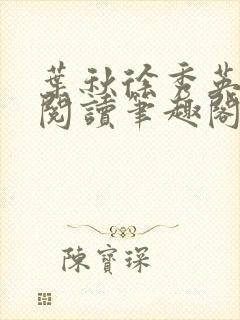 葉秋徐秀英
閱讀筆趣閣
陳寶琛